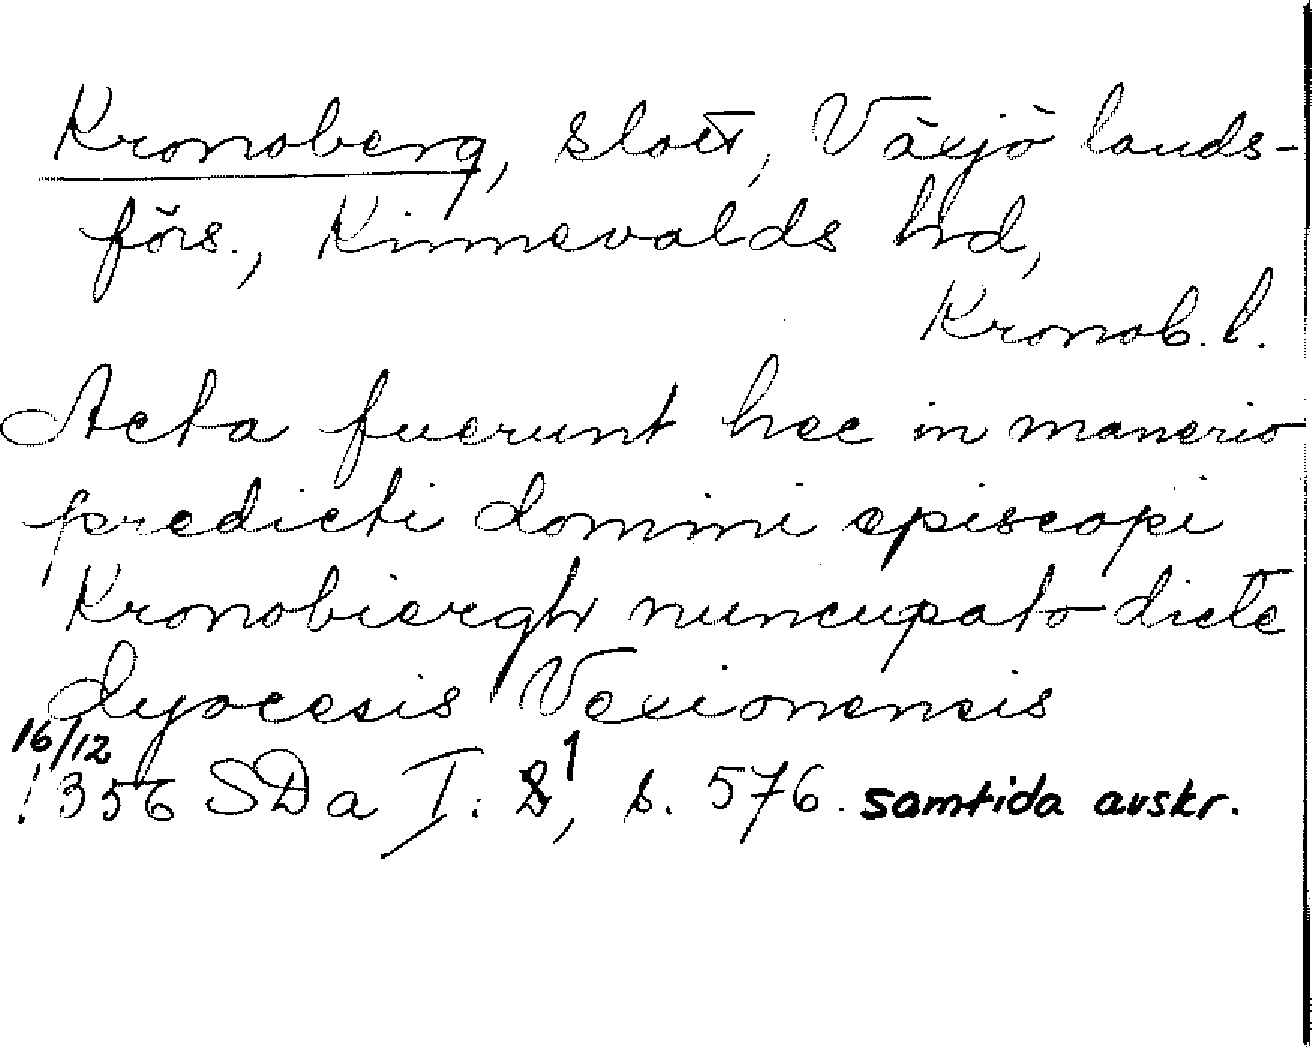 Kronoberg, slott, Växjö lands-
förs., Kinnevalds hd,
Kronob. l.
Acta fuerunt hec in manerio
predicti domini episcopi
Kronobiergh nuncupato dicte
dyocesis Vexionensis
16/12
1356 SDa I. 1, s. 576. samtida avskr.